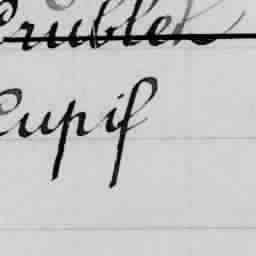 Crublet
Cupif